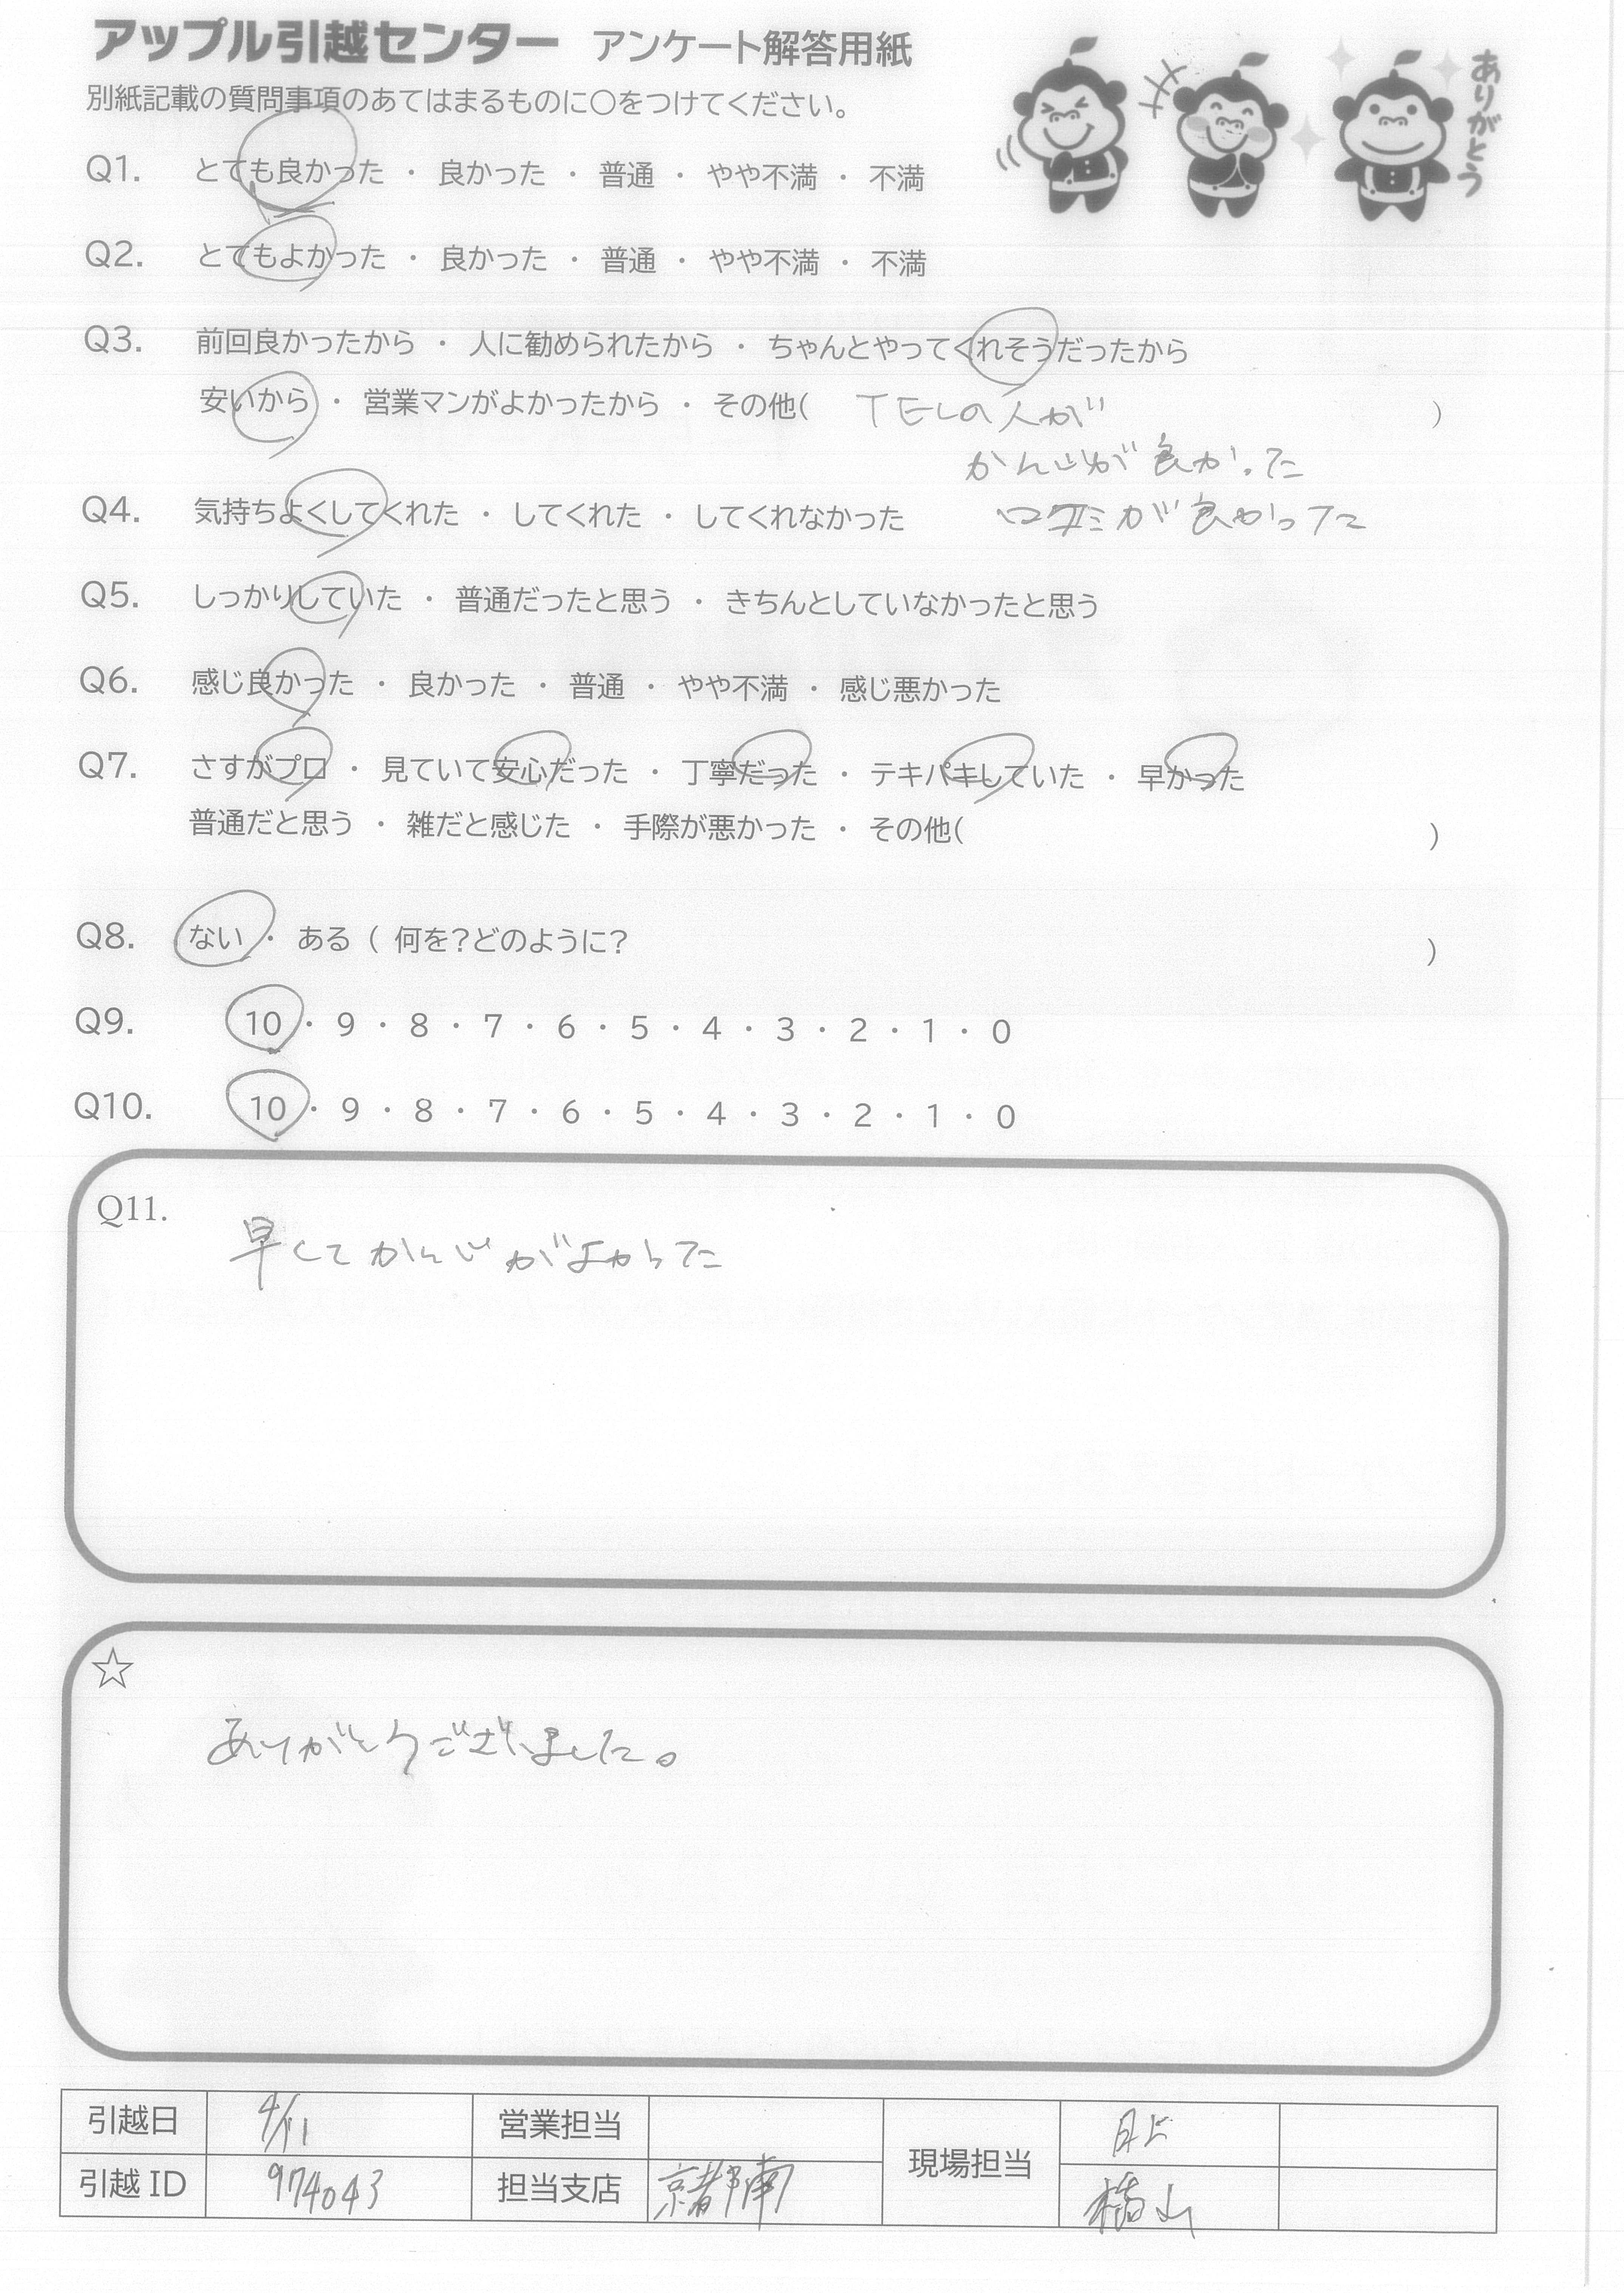 アップル引越センター アンケート解答用紙
ありがとう
別紙記載の質問事項のあてはまるものに○をつけてください。
Q1. とても良かった ・ 良かった ・ 普通 ・ やや不満 ・ 不満
Q2. とてもよかった ・ 良かった ・ 普通 ・ やや不満 ・ 不満
Q3. 前回良かったから ・ 人に勧められたから ・ ちゃんとやってくれそうだったから
安いから ・ 営業マンがよかったから ・ その他( TELの人が )
かんじが良かった
Q4. 気持ちよくしてくれた ・ してくれた ・ してくれなかった 口コミが良かった
Q5. しっかりしていた ・ 普通だったと思う ・ きちんとしていなかったと思う
Q6. 感じ良かった ・ 良かった ・ 普通 ・ やや不満 ・ 感じ悪かった
Q7. さすがプロ ・ 見ていて安心だった ・ 丁寧だった ・ テキパキしていた ・ 早かった
普通だと思う ・ 雑だと感じた ・ 手際が悪かった ・ その他( )
Q8. ない ・ ある ( 何を?どのように? )
Q9. 10 ・ 9 ・ 8 ・ 7 ・ 6 ・ 5 ・ 4 ・ 3 ・ 2 ・ 1 ・ 0
Q10. 10 ・ 9 ・ 8 ・ 7 ・ 6 ・ 5 ・ 4 ・ 3 ・ 2 ・ 1 ・ 0
Q11.
早くてかんじがよかった
☆
ありがとうございました。
引越日 4/11 営業担当 現場担当
引越ID 974043 担当支店 京都南 橋山